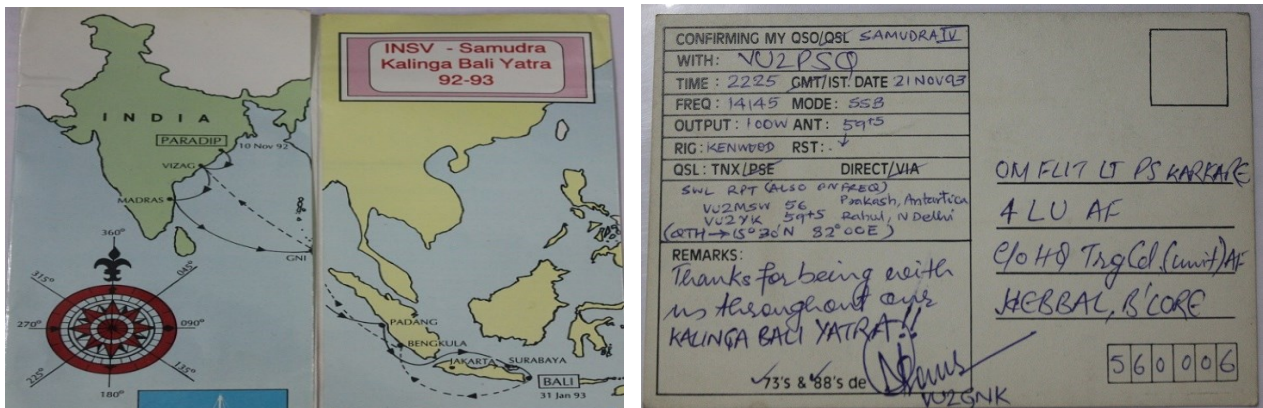 INSV - Samudra
Kalinga Bali Yatra
92-93
INDIA
PARADIP
10 Nov 92
VIZAG
MADRAS
GNI
360°
045°
090°
135°
180°
225°
270°
315°
PADANG
BENGKULA
JAKARTA
SURABAYA
BALI
31 Jan 93
CONFIRMING MY QSO/QSL SAMUDRA IV
WITH: VU2PSQ
TIME: 2225 GMT/IST. DATE 21 NOV 93
FREQ: 14145 MODE: SSB
OUTPUT: 100W ANT: 59+5
RIG: KENWOOD RST:
QSL: TNX/PSE DIRECT/VIA
SWL RPT (ALSO ON FREQ)
VU2MSW 56 Prakash, Antartica
VU2YK 59+5 Rahul, N Delhi
(QTH → 15°30'N 82°00E)
REMARKS:
Thanks for being with
us throughout our
KALINGA BALI YATRA!!
73's & 88's de
VU2GNK
OM FLIT LT PS KARKARE
4 LU AF
C/o HQ Trg Cd. (Unit) AF
HEBBAL, B'LORE
560006